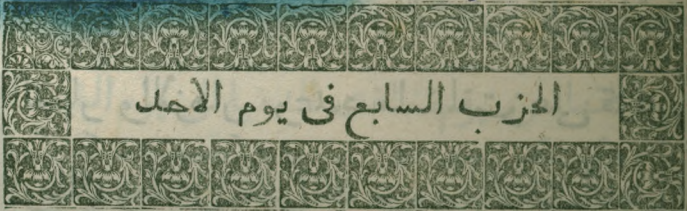 الحزب السابع فى يوم الاحد